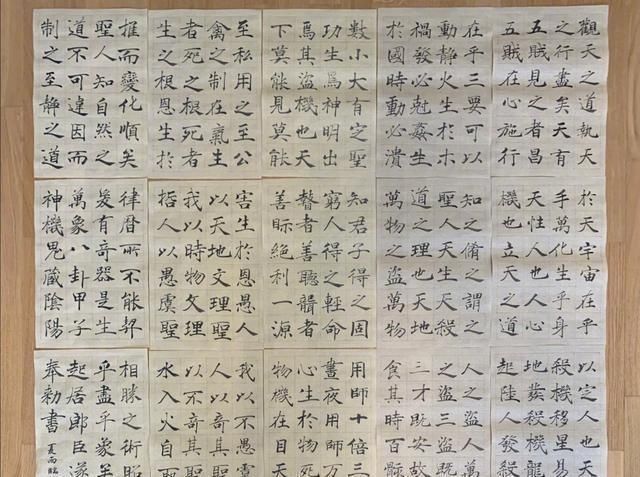 觀天之道執天
之行盡矣天有
五賊見之者昌
五賊在心施行
於天宇宙在乎
手萬化生乎身
天性人也人心
機也立天之道
以定人也天
殺機移星易
地發殺機龍
起陸人發殺
在乎三要可以
動靜火生於木
禍發必剋姦生
於國時動必潰
知之脩之謂之
聖人天生天殺
道之理也天地
萬物之盜萬物
人之盜人萬
之盜三盜既
三才既安故
食其時百骸
數小大有定聖
功生焉神明出
焉其盜機也天
下莫能見莫能
知君子得之固
窮人得之輕命
瞽者善聽聾者
善眎絕利一源
用師十倍三
晝夜用師万
心生於物死
物機在目天
至私用之至公
禽之制在氣生
者死之根死者
生之根恩生於
害生於恩愚人
以天地文理聖
我以時物文理
哲人以愚虞聖
我以不愚
人以奇其
以不奇其聖
水入火自
推而變化順矣
聖人知自然之
道不可違因而
制之至靜之道
律曆所不能契
爰有奇器是生
萬象八卦甲子
神機鬼藏陰陽
相勝之術昭
乎盡乎象
起居郎臣遂
奉勑書
夏雨臨